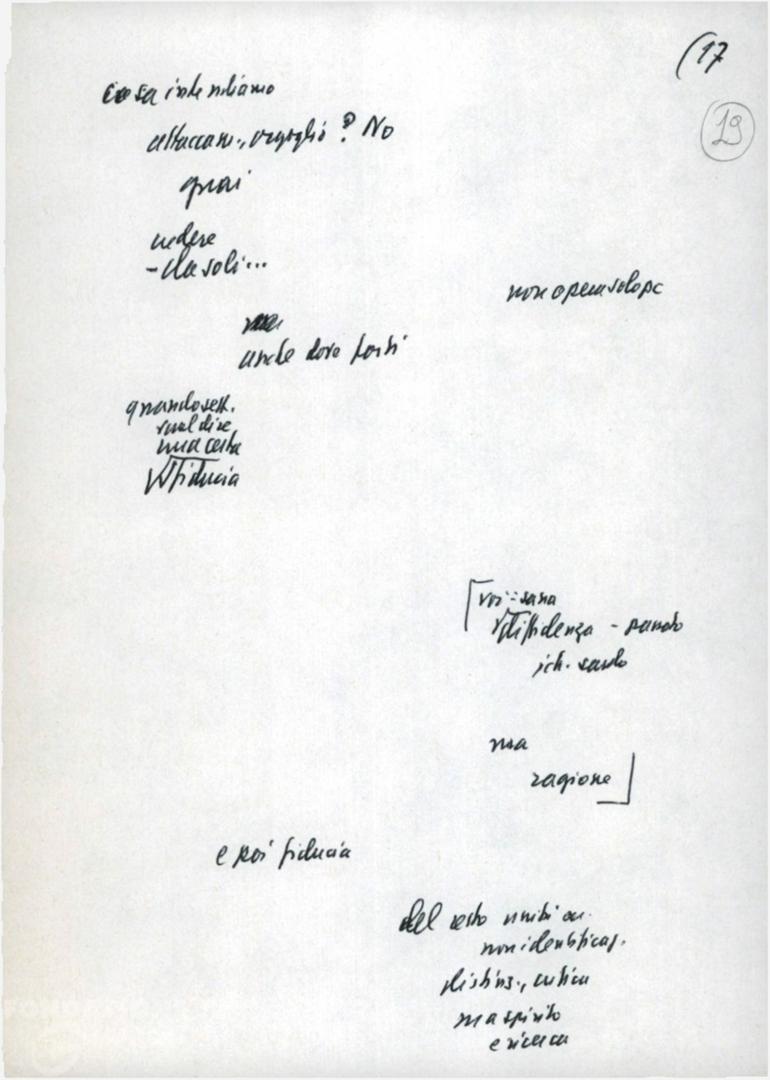 (17
19
cosa intendiamo
attaccam., orgoglio? No
guai
vedere
- da soli...
non opera solo pc
ma
anche dove forti
quando sett.
vuol dire
una certa
fiducia
voi: sana
diffidenza - quando
ich. quando
ma
ragione
e poi fiducia
del resto unità
non identificaz.
distinz., critica
ma spirito
e ricerca